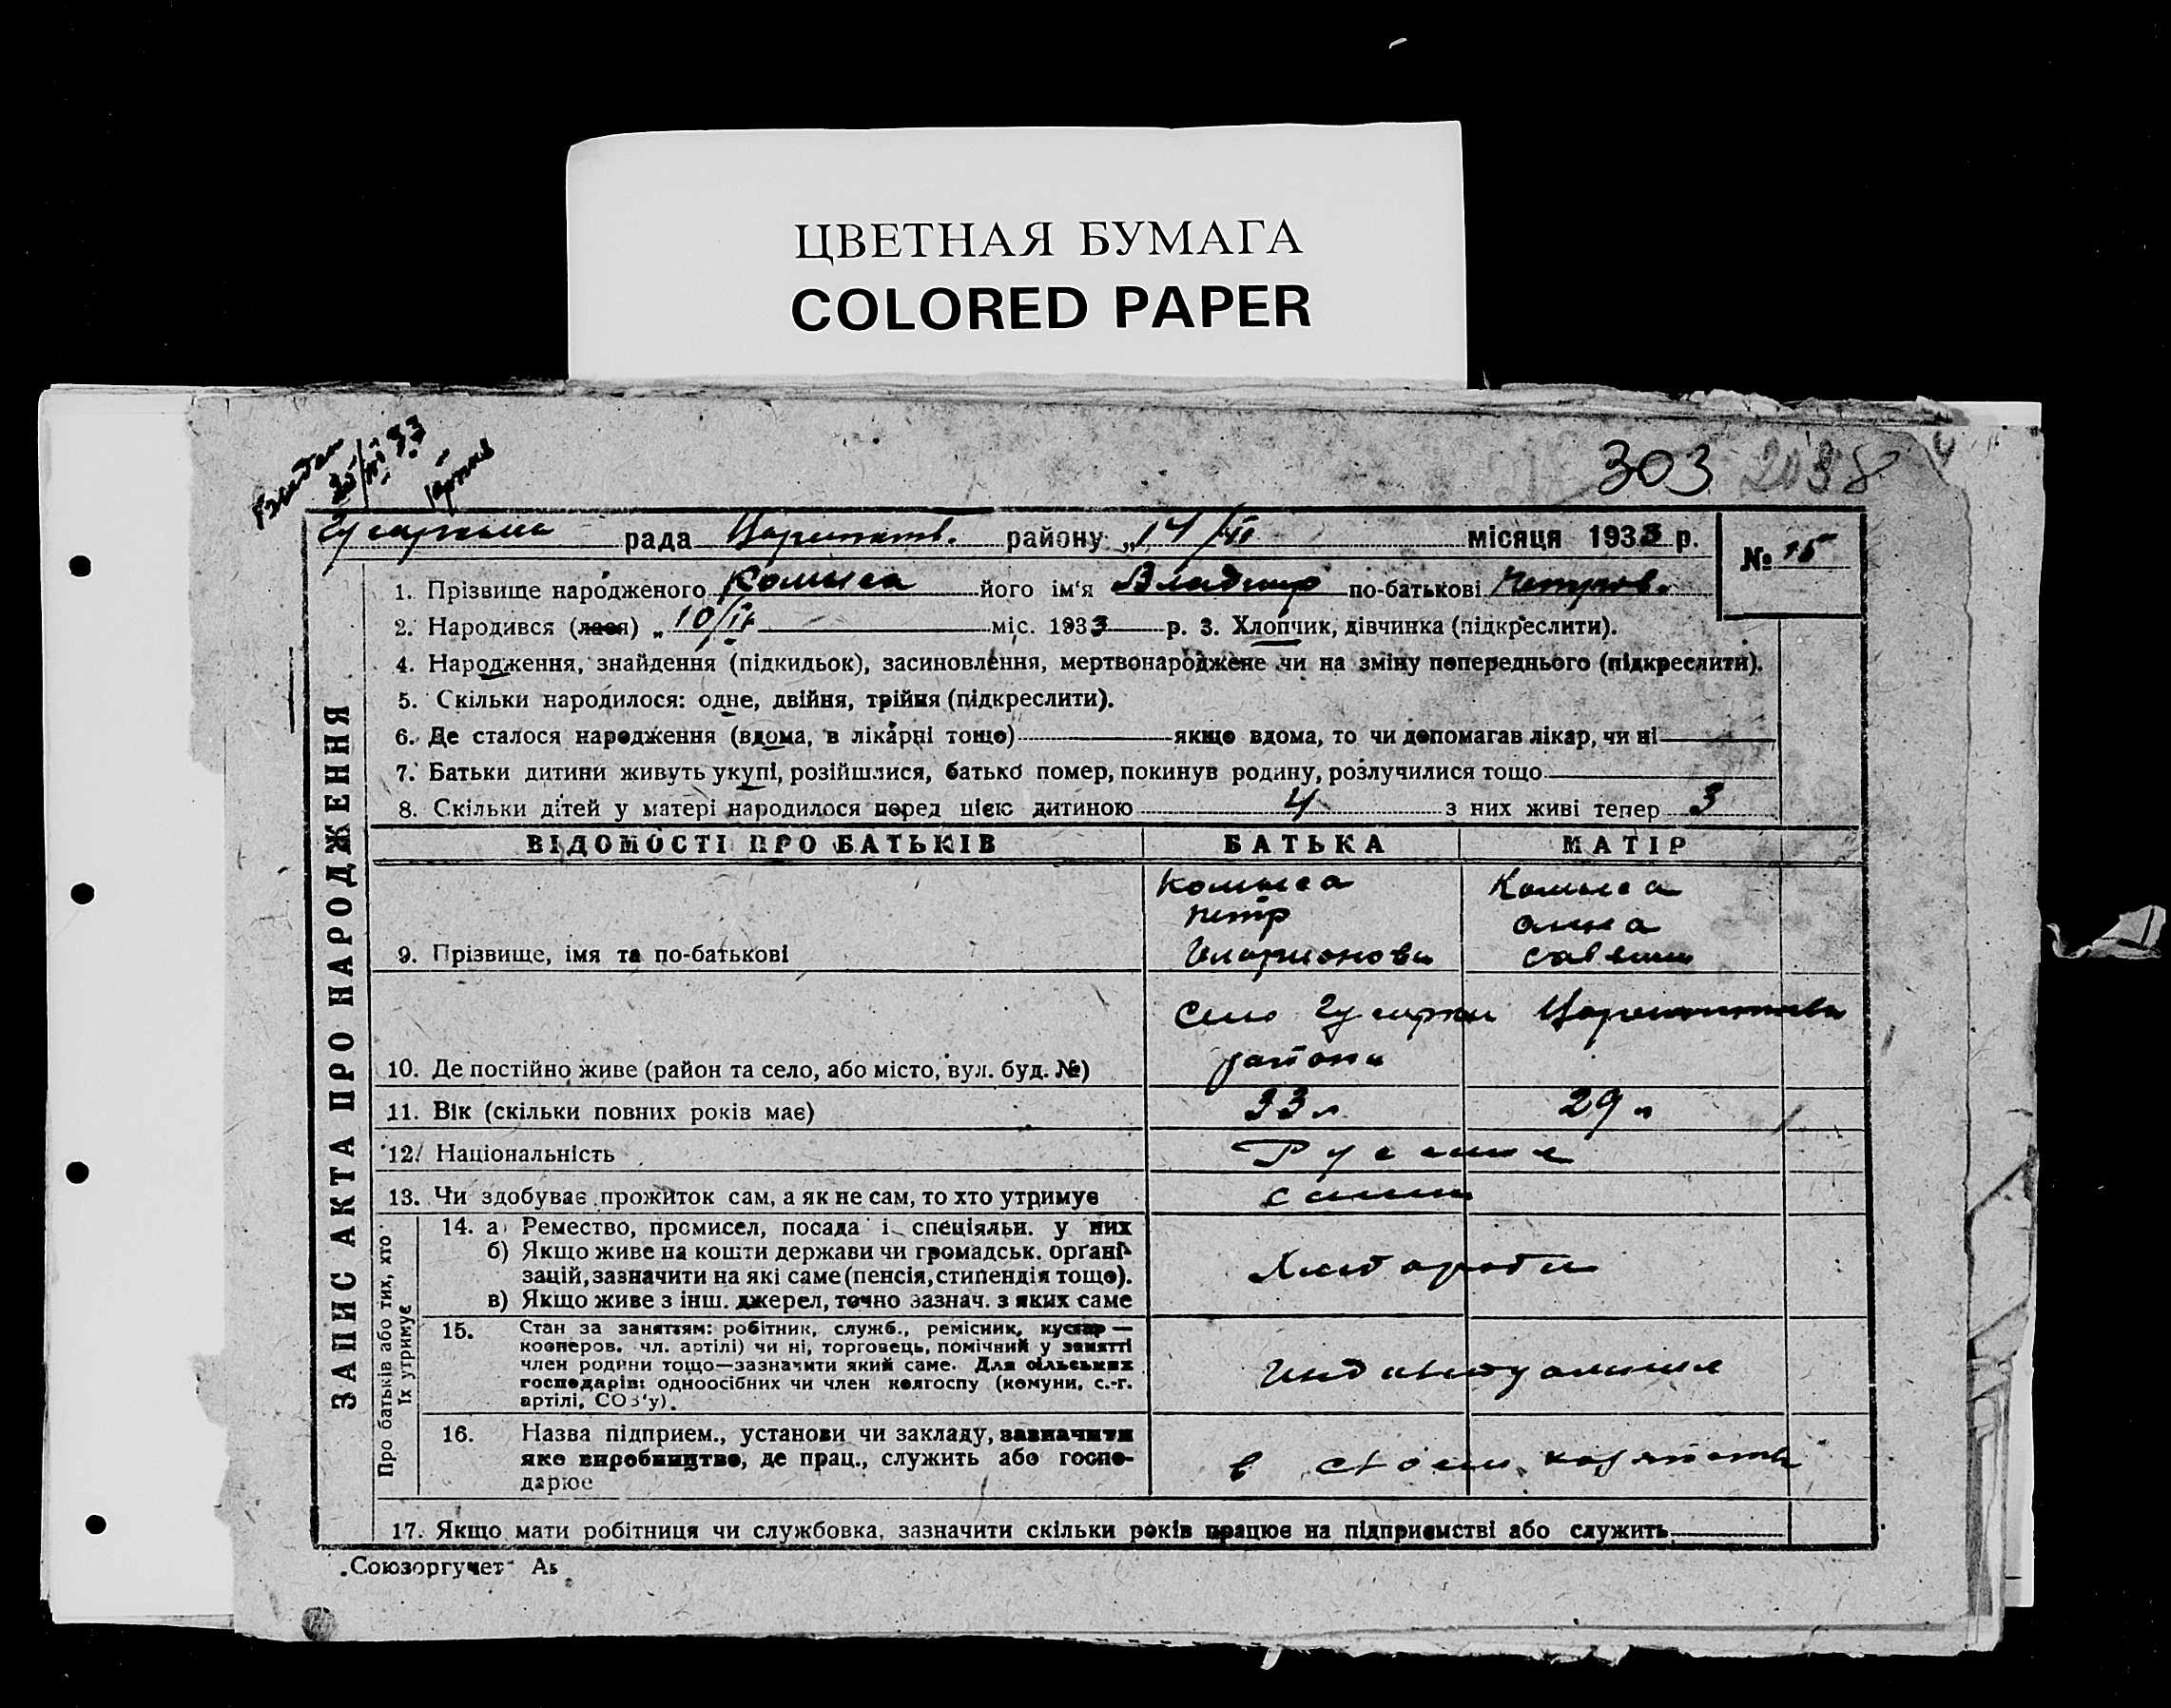 ЦВЕТНАЯ БУМАГА
COLORED PAPER
33
303 2038
рада района 14/II місяця 1933 р. № 15
1. Прізвище народженого його ім'я Владимир по-батькові Петров.
2. Народився (лася) „10/II міс. 1933 р. 3. Хлопчик, дівчинка (підкреслити).
4. Народження, знайдення (підкидьок), засиновлення, мертвонароджене чи на зміну попереднього (підкреслити).
5. Скільки народилося: одне, двійня, трійня (підкреслити).
6. Де сталося народження (вдома, в лікарні тощо) якщо вдома, то чи допомагав лікар, чи ні
7. Батьки дитини живуть укупі, розійшлися, батько помер, покинув родину, розлучилися тощо
8. Скільки дітей у матері народилося перед цією дитиною 4 з них живі тепер 3
ЗАПИС АКТА ПРО НАРОДЖЕННЯ
ВІДОМОСТІ ПРО БАТЬКІВ БАТЬКА МАТІР
9. Прізвище, імя та по-батькові
Петр
Иларионови
Анна
Саввишн
10. Де постійно живе (район та село, або місто, вул. буд. №)
Село Гусарки
района
11. Вік (скільки повних років має) 33 л 29 л
12. Національність
13. Чи здобуває прожиток сам, а як не сам, то хто утримує сами
Про батьків або тих, хто
їх утримує
14. а) Ремество, промисел, посада і спеціяльн. у них
б) Якщо живе на кошти держави чи громадськ. органі-
зацій, зазначити на які саме (пенсія, стипендія тощо).
в) Якщо живе з інш. джерел, точно зазнач. з яких саме
Хлебороби
15. Стан за заняттям: робітник, служб., ремісник, кустар—
кооперов. чл. артілі) чи ні, торговець, помічний у занятті
член родини тощо—зазначити який саме. Для сільських
господарів: одноосібних чи член колгоспу (комуни, с.-г.
артілі, СОЗ'у).
16. Назва підприєм., установи чи закладу, зазначити
яке виробництво, де прац., служить або госпо-
дарює
в своем хозяйстве
17. Якщо мати робітниця чи службовка, зазначити скільки років працює на підприємстві або служить
„Союзоргучет"